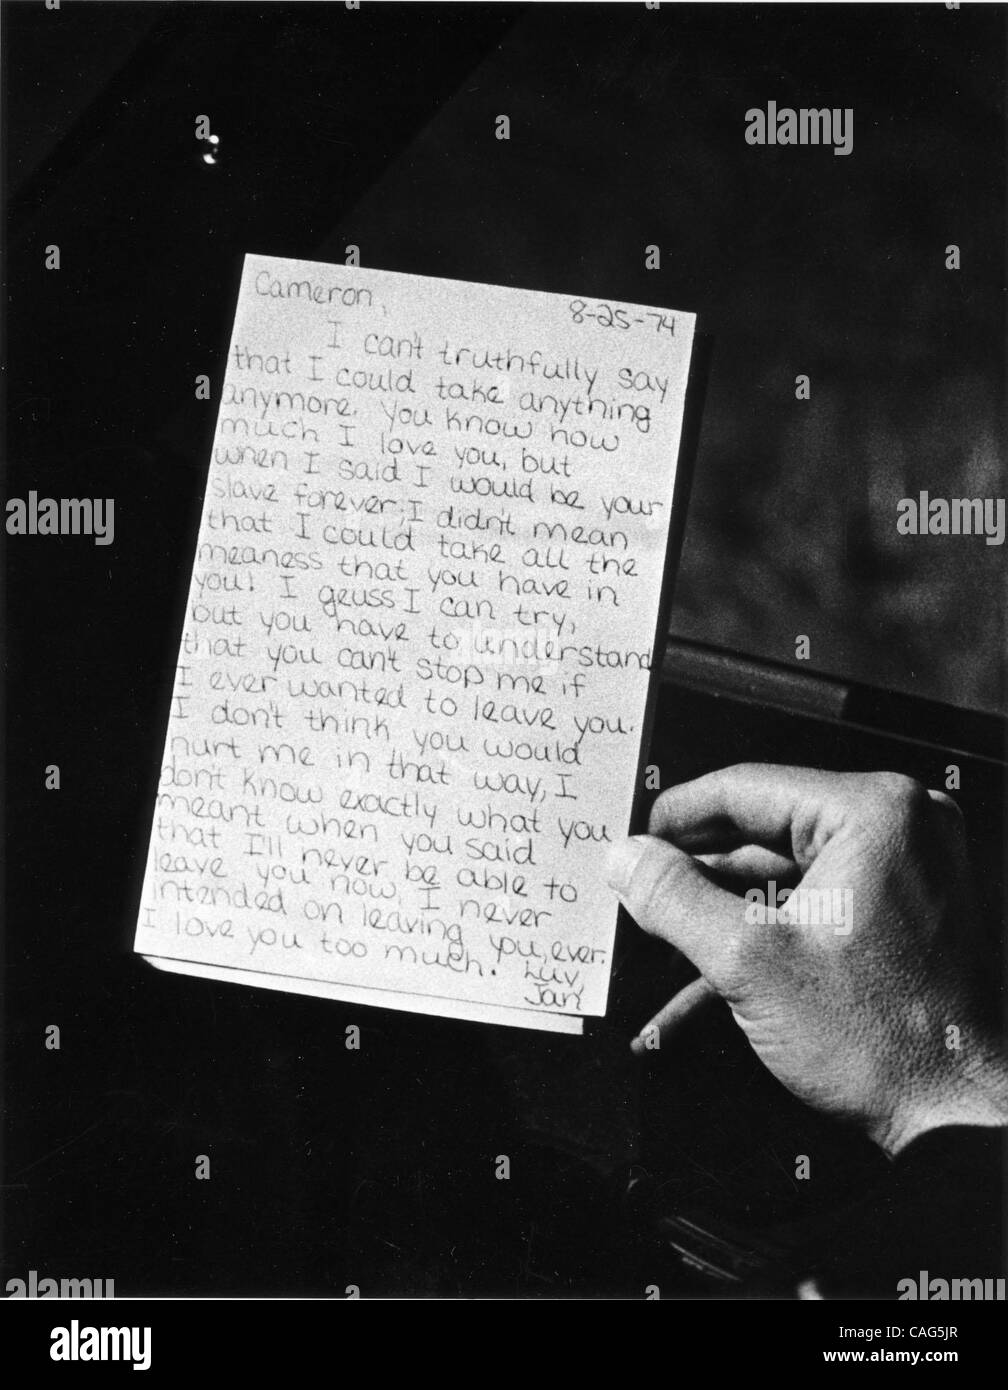 Cameron,
8-25-74
I can't truthfully say
that I could take anything
anymore. You know how
much I love you, but
when I said I would be your
slave forever; I didn't mean
that I could take all the
meaness that you have in
you! I geuss I can try,
but you have to understand
that you can't stop me if
I ever wanted to leave you.
I don't think you would
hurt me in that way, I
don't know exactly what you
meant when you said
that I'll never be able to
leave you now, I never
intended on leaving you, ever.
I love you too much. Luv,
Jan
a alamy
alamy
Image ID: CAG5JR
www.alamy.com